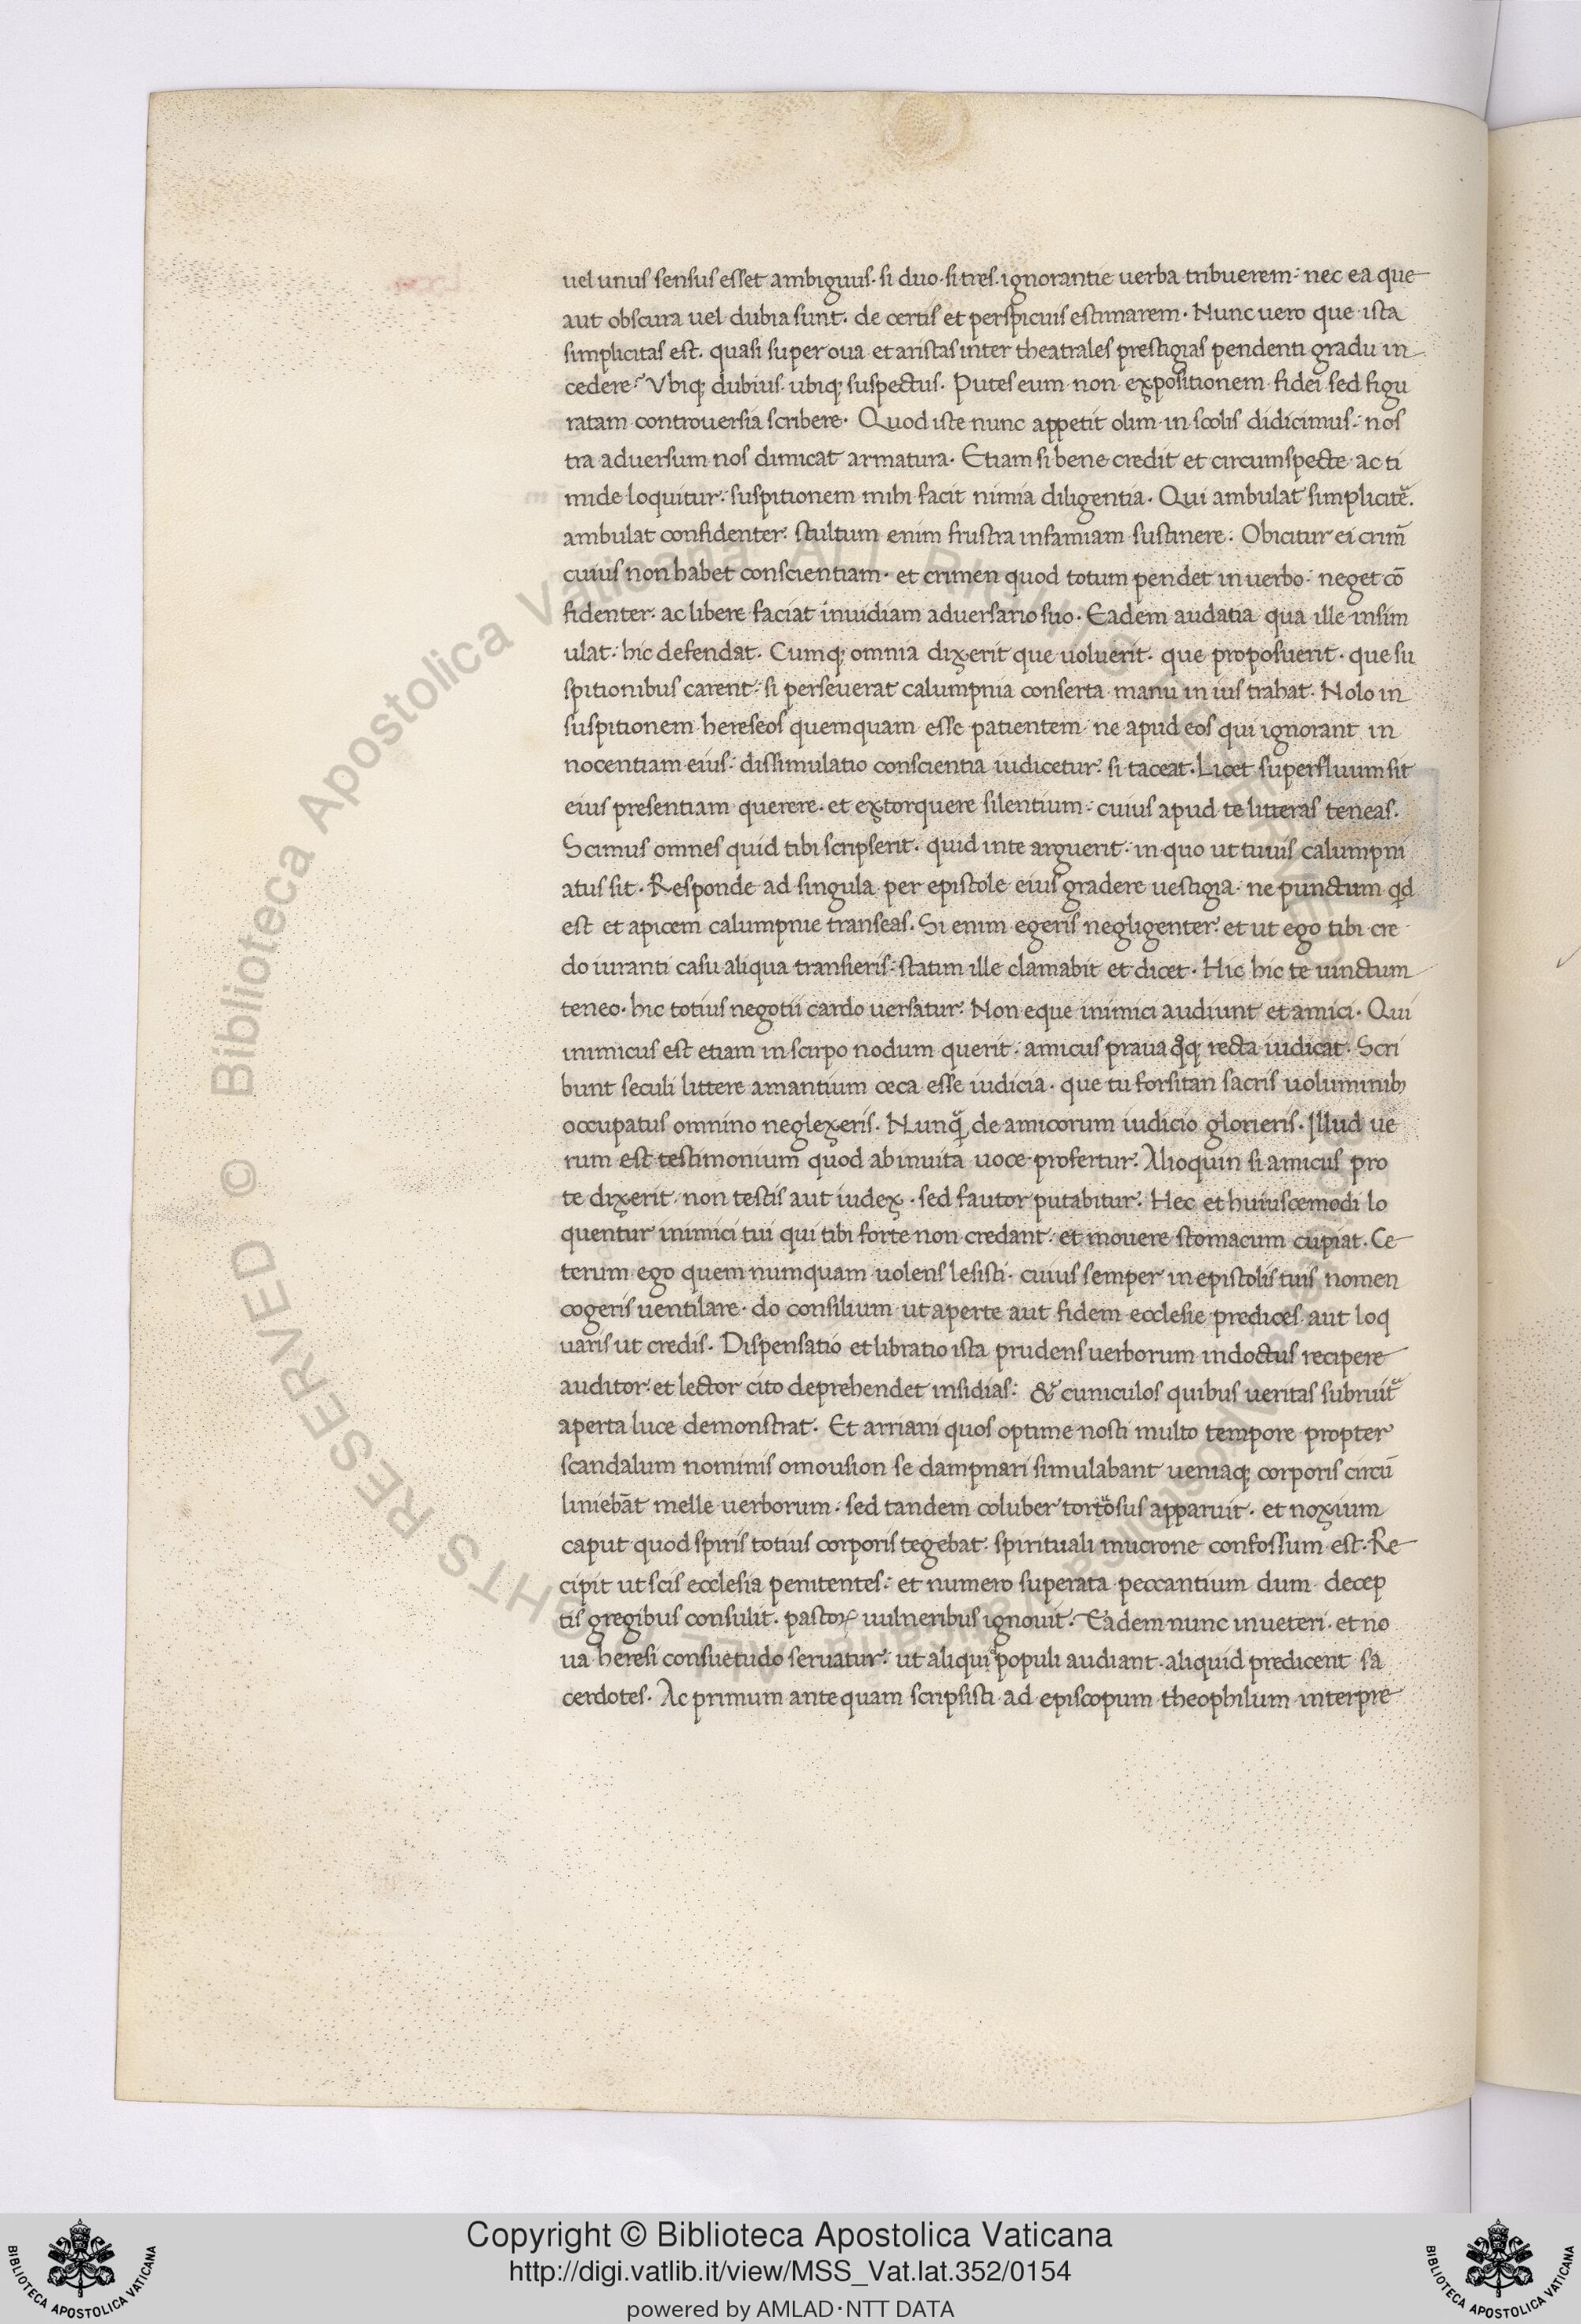 uel unus sensus esset ambiguus· si duo· si tres· ignorantie uerba tribuerem: nec ea que
aut obscura uel dubia sunt· de certis et perspicuis estimarem· Nunc uero que ista
simplicitas est· quasi super oua et aristas inter theatrales prestigias pendenti gradu in
cedere? Vbiq; dubius ubiq; suspectus· Putes eum non expositionem fidei sed figu
ratam controuersia scribere· Quod iste nunc appetit olim in scolis didicimus: nos
tra aduersum nos dimicat armatura· Etiam si bene credit et circumspecte ac ti
mide loquitur: suspitionem mihi facit nimia diligentia· Qui ambulat simplicit̃·
ambulat confidenter: stultum enim frustra infamiam sustinere: Obicitur ei crim̃
cuius non habet conscientiam· et crimen quod totum pendet in uerbo· neget cō
fidenter· ac libere faciat inuidiam aduersario suo· Eadem audatia qua ille insim
ulat: hic defendat· Cumq; omnia dixerit que uoluerit· que proposuerit· que su
spitionibus carent: si perseuerat calumpnia conserta manu in ius trahat· Nolo in
suspitionem hereseos quemquam esse patientem ne apud eos qui ignorant in
nocentiam eius: dissimulatio conscientia iudicetur: si taceat· Licet superfluum sit
eius presentiam querere· et extorquere silentium: cuius apud te litteras teneas·
Scimus omnes quid tibi scripserit· quid in te arguerit: in quo ut tu uis calumpni
atus sit· Responde ad singula per epistole eius gradere uestigia· ne punctum qd
est et apicem calumpnie transeas· Si enim egeris negligenter: et ut ego tibi cre
do iuranti casu aliqua transieris: statim ille clamabit et dicet· Hic hic te uinctum
teneo· hic totius negotii cardo uersatur: Non eque inimici audiunt et amici· Qui
inimicus est etiam in scirpo nodum querit: amicus praua qq; recta iudicat· Scri
bunt seculi littere amantium ceca esse iudicia· que tu forsitan sacris uoluminib;
occupatus omnino neglexeris· Nunq̃ de amicorum iudicio glorieris· Illud ue
rum est testimonium quod ab inuita uoce profertur: Alioquin si amicus pro
te dixerit· non testis aut iudex· sed fautor putabitur: Hec et huiuscemodi lo
quentur inimici tui qui tibi forte non credant: et mouere stomacum cupiat· Ce
terum ego quem numquam uolens lesisti· cuius semper in epistolis tuis nomen
cogeris uentilare· do consilium ut aperte aut fidem ecclesie predices· aut loq
uaris ut credis· Dispensatio et libratio ista prudens uerborum indoctus recipere
auditor: et lector cito deprehendet insidias: & cuniculos quibus ueritas subruit̃
aperta luce demonstrat· Et arriani quos optime nosti multo tempore propter
scandalum nominis omousion se dampnari simulabant ueniaq; corporis circū
liniebāt melle uerborum· sed tandem coluber tortosus apparuit· et noxium
caput quod spiris totius corporis tegebat· spirituali mucrone confossum est· Re
cipit ut scis ecclesia penitentes: et numero superata peccantium dum decep
tis gregibus consulit· pastoꝝ uulneribus ignouit· Eadem nunc in ueteri· et no
ua heresi consuetudo seruatur: ut aliqui populi audiant· aliquid predicent sa
cerdotes· Ac primum ante quam scripsisti ad episcopum theophilum interpre
Copyright © Biblioteca Apostolica Vaticana
http://digi.vatlib.it/view/MSS_Vat.lat.352/0154
powered by AMLAD·NTT DATA